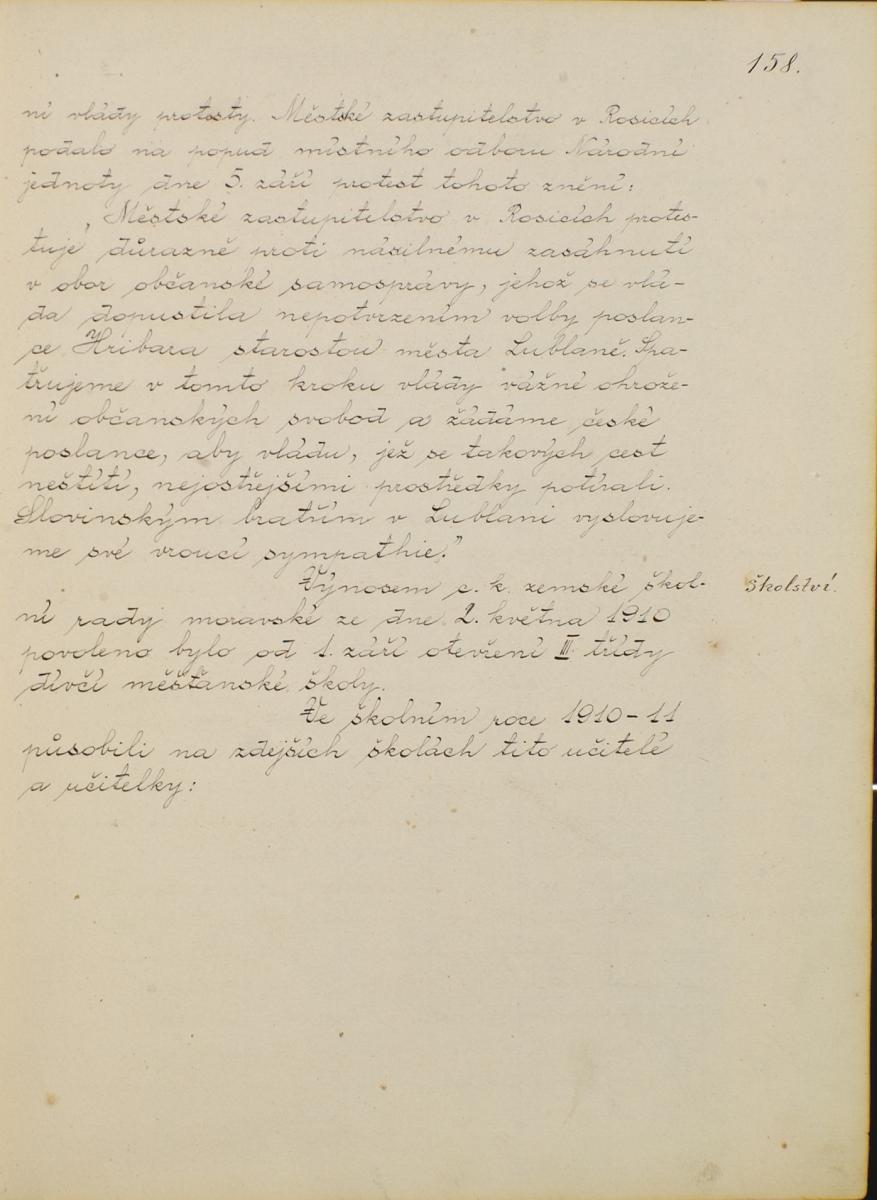 158.
ní vlády protesty. Městské zastupitelstvo v Rosicích
podalo na popud místního odboru Národní
jednoty dne 5. září protest tohoto znění:
„Městské zastupitelstvo v Rosicích protes-
tuje důrazně proti násilnému zasáhnutí
v obor občanské samosprávy, jehož se vlá-
da dopustila nepotvrzením volby poslan-
ce Hribara starostou města Lublaně. Spa-
třujeme v tomto kroku vlády vážné ohrože-
ní občanských svobod a žádáme české
poslance, aby vládu, jež se takových cest
neštítí, nejostřejšími prostředky potírali.
Slovinským bratřím v Lublani vyslovuje-
me své vroucí sympathie."
Výnosem c. k. zemské škol-
školství.
ní rady moravské ze dne 2. května 1910
povoleno bylo od 1. září otevření III. třídy
dívčí měšťanské školy.
Ve školním roce 1910-11
působili na zdejších školách tito učitelé
a učitelky: